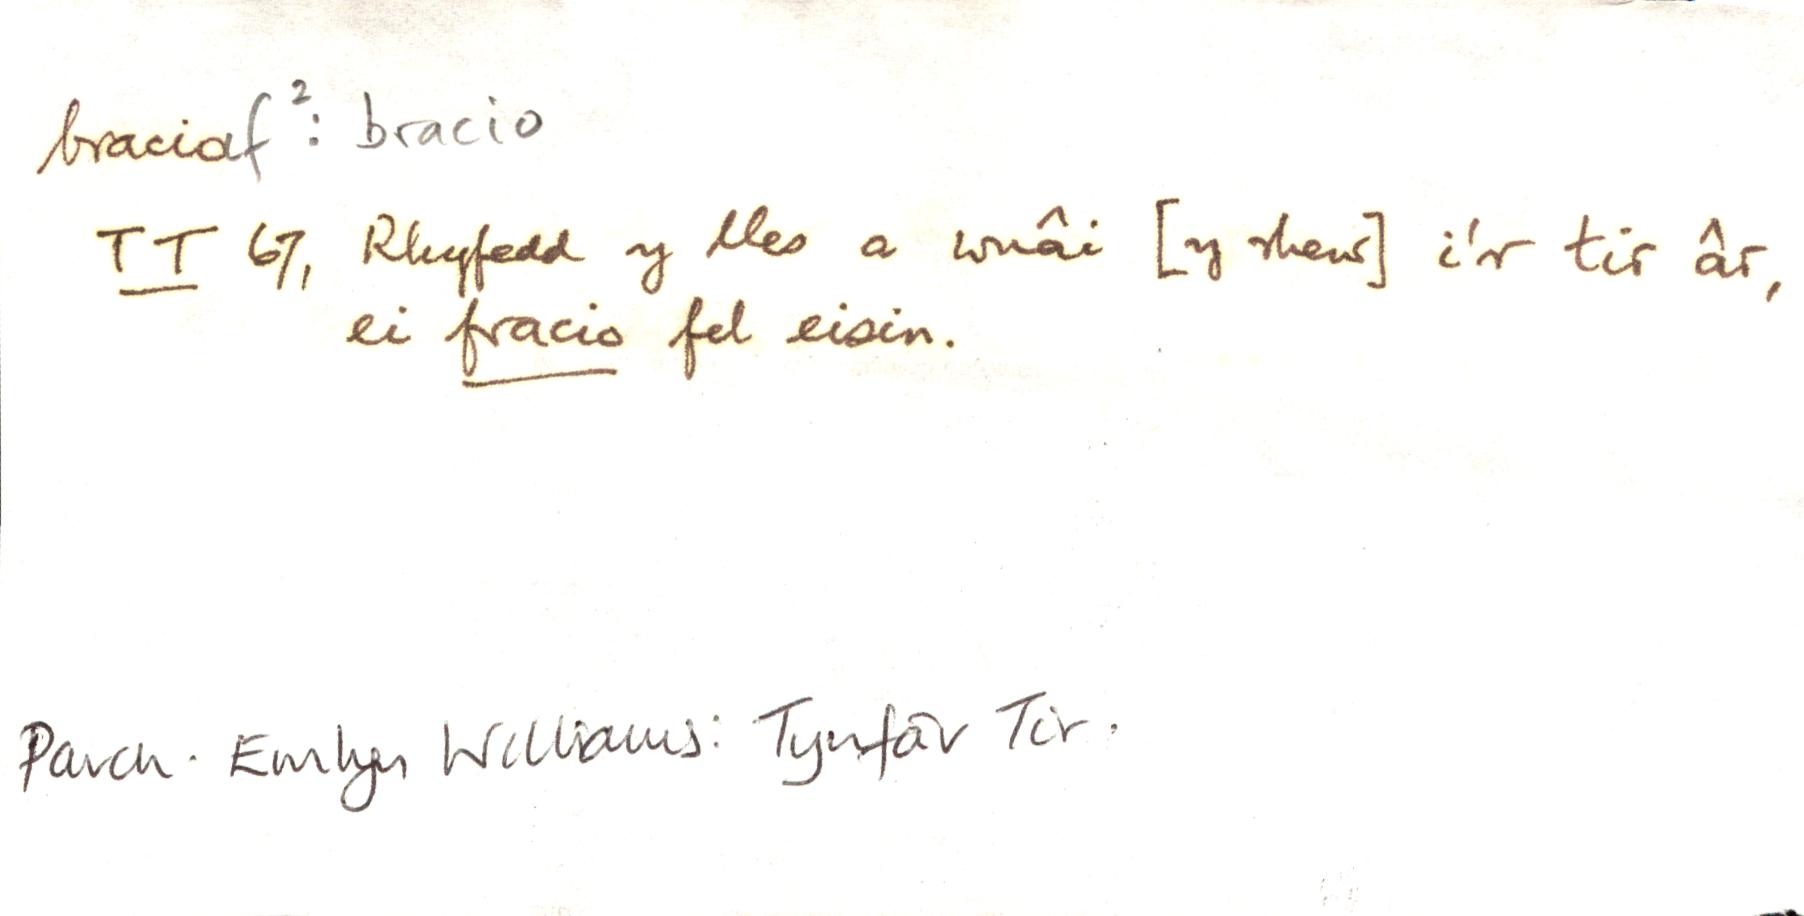 braciaf²: bracio
TT 67, Rhyfedd y lles a wnâi [y rhew] i'r tir âr,
ei fracio fel eisin.
Parch. Emlyn Williams: Tynfâr Tir.